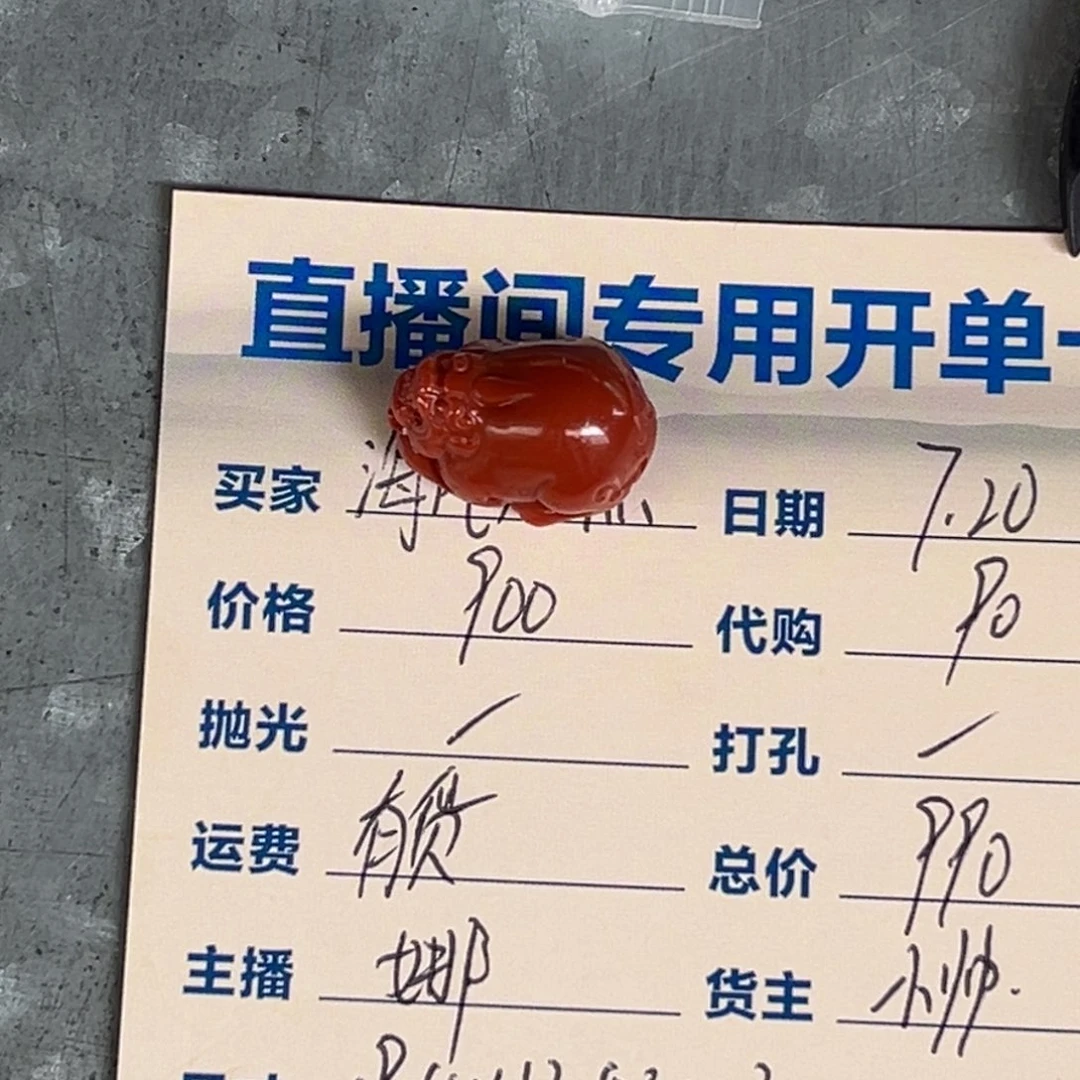 直播间专用开单
买家 海 日期 7.20
价格 900 代购 90
抛光 / 打孔 /
运费 有货 总价 990
主播 娜 货主 小帅.